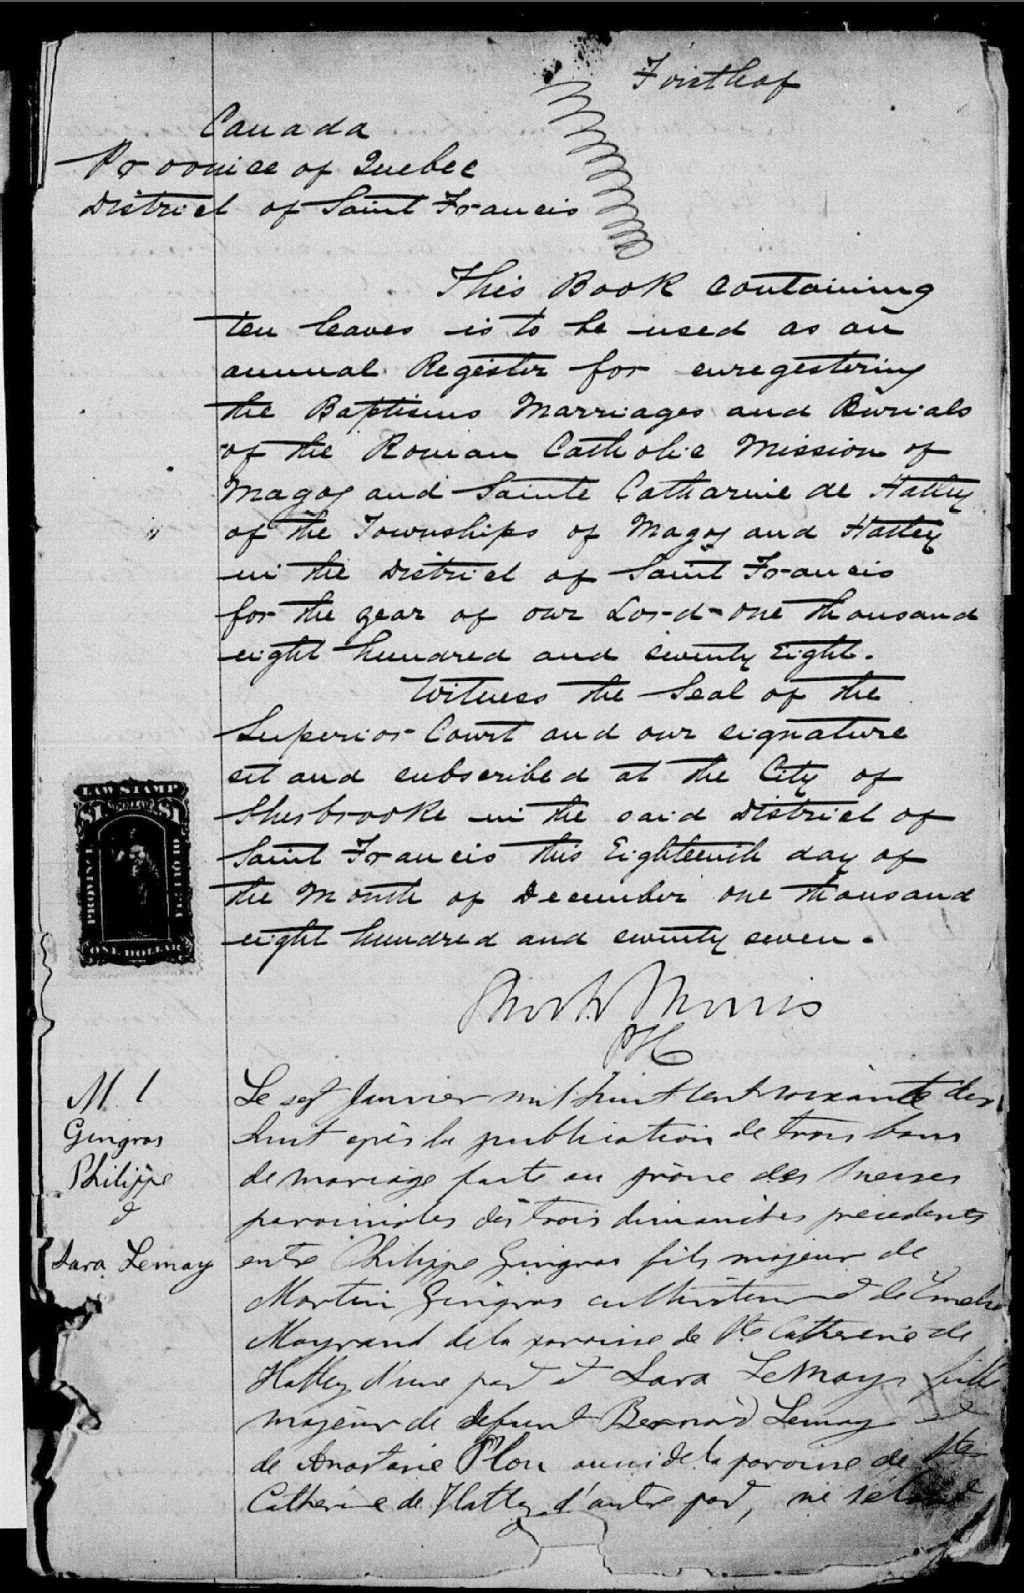 First leaf
Canada
Province of Quebec
District of Saint Francis
This Book containing
ten leaves is to be used as an
annual Register for enregestering
the Baptisms Marriages and Burials
of the Roman Catholic Mission of
Magog and Sainte Catharine de Hatley
of the Townships of Magog and Hatley
in the District of Saint Francis
for the year of our Lord one thousand
eight hundred and seventy Eight.
Witness the Seal of the
Superior Court and our signature
set and subscribed at the City of
Sherbrooke in the said District of
Saint Francis this Eighteenth day of
the Month of December one thousand
eight hundred and seventy seven.
LAW STAMP
$1 $1
PROVINCE
OF QUEBEC
ONE DOLLAR
Morris
M. 1
Gingras
Philippe
&
Sara Lemay
Le sept Janvier mil huit cent soixante dix
huit après la publication de trois bans
de mariage faite au prône des messes
paroissiales des trois dimanches précédents
entre Philippe Gingras fils majeur de
Martin Gingras cultivateur & de Emelie
Mayrand de la paroisse de Ste Catherine de
Hatley d'une part et Sara LeMay fille
majeur de defunt Bernard Lemay et
de Anastasie Plou aussi de la paroisse de Ste
Catherine de Hatley d'autre part, ne